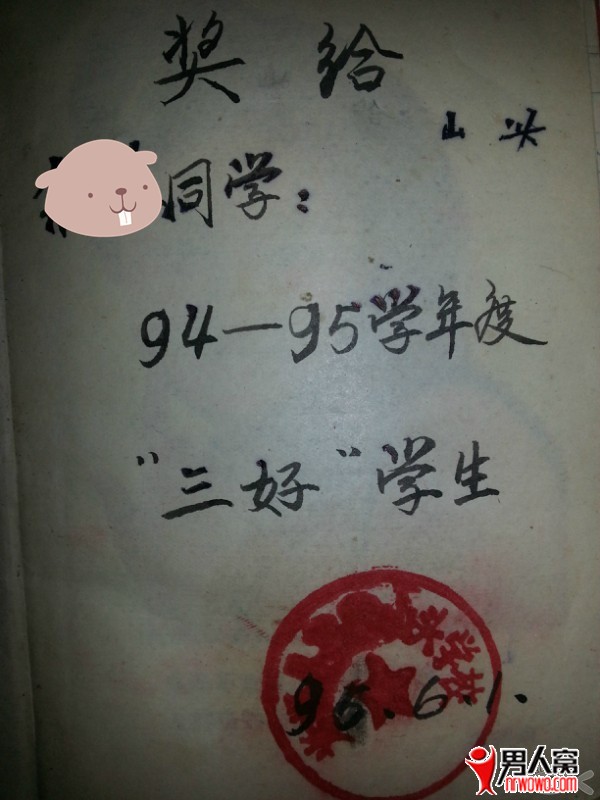 奖给
山头
同学：
94—95学年度
“三好”学生
头学校
95.6.1.
男人窝
nrwowo.com